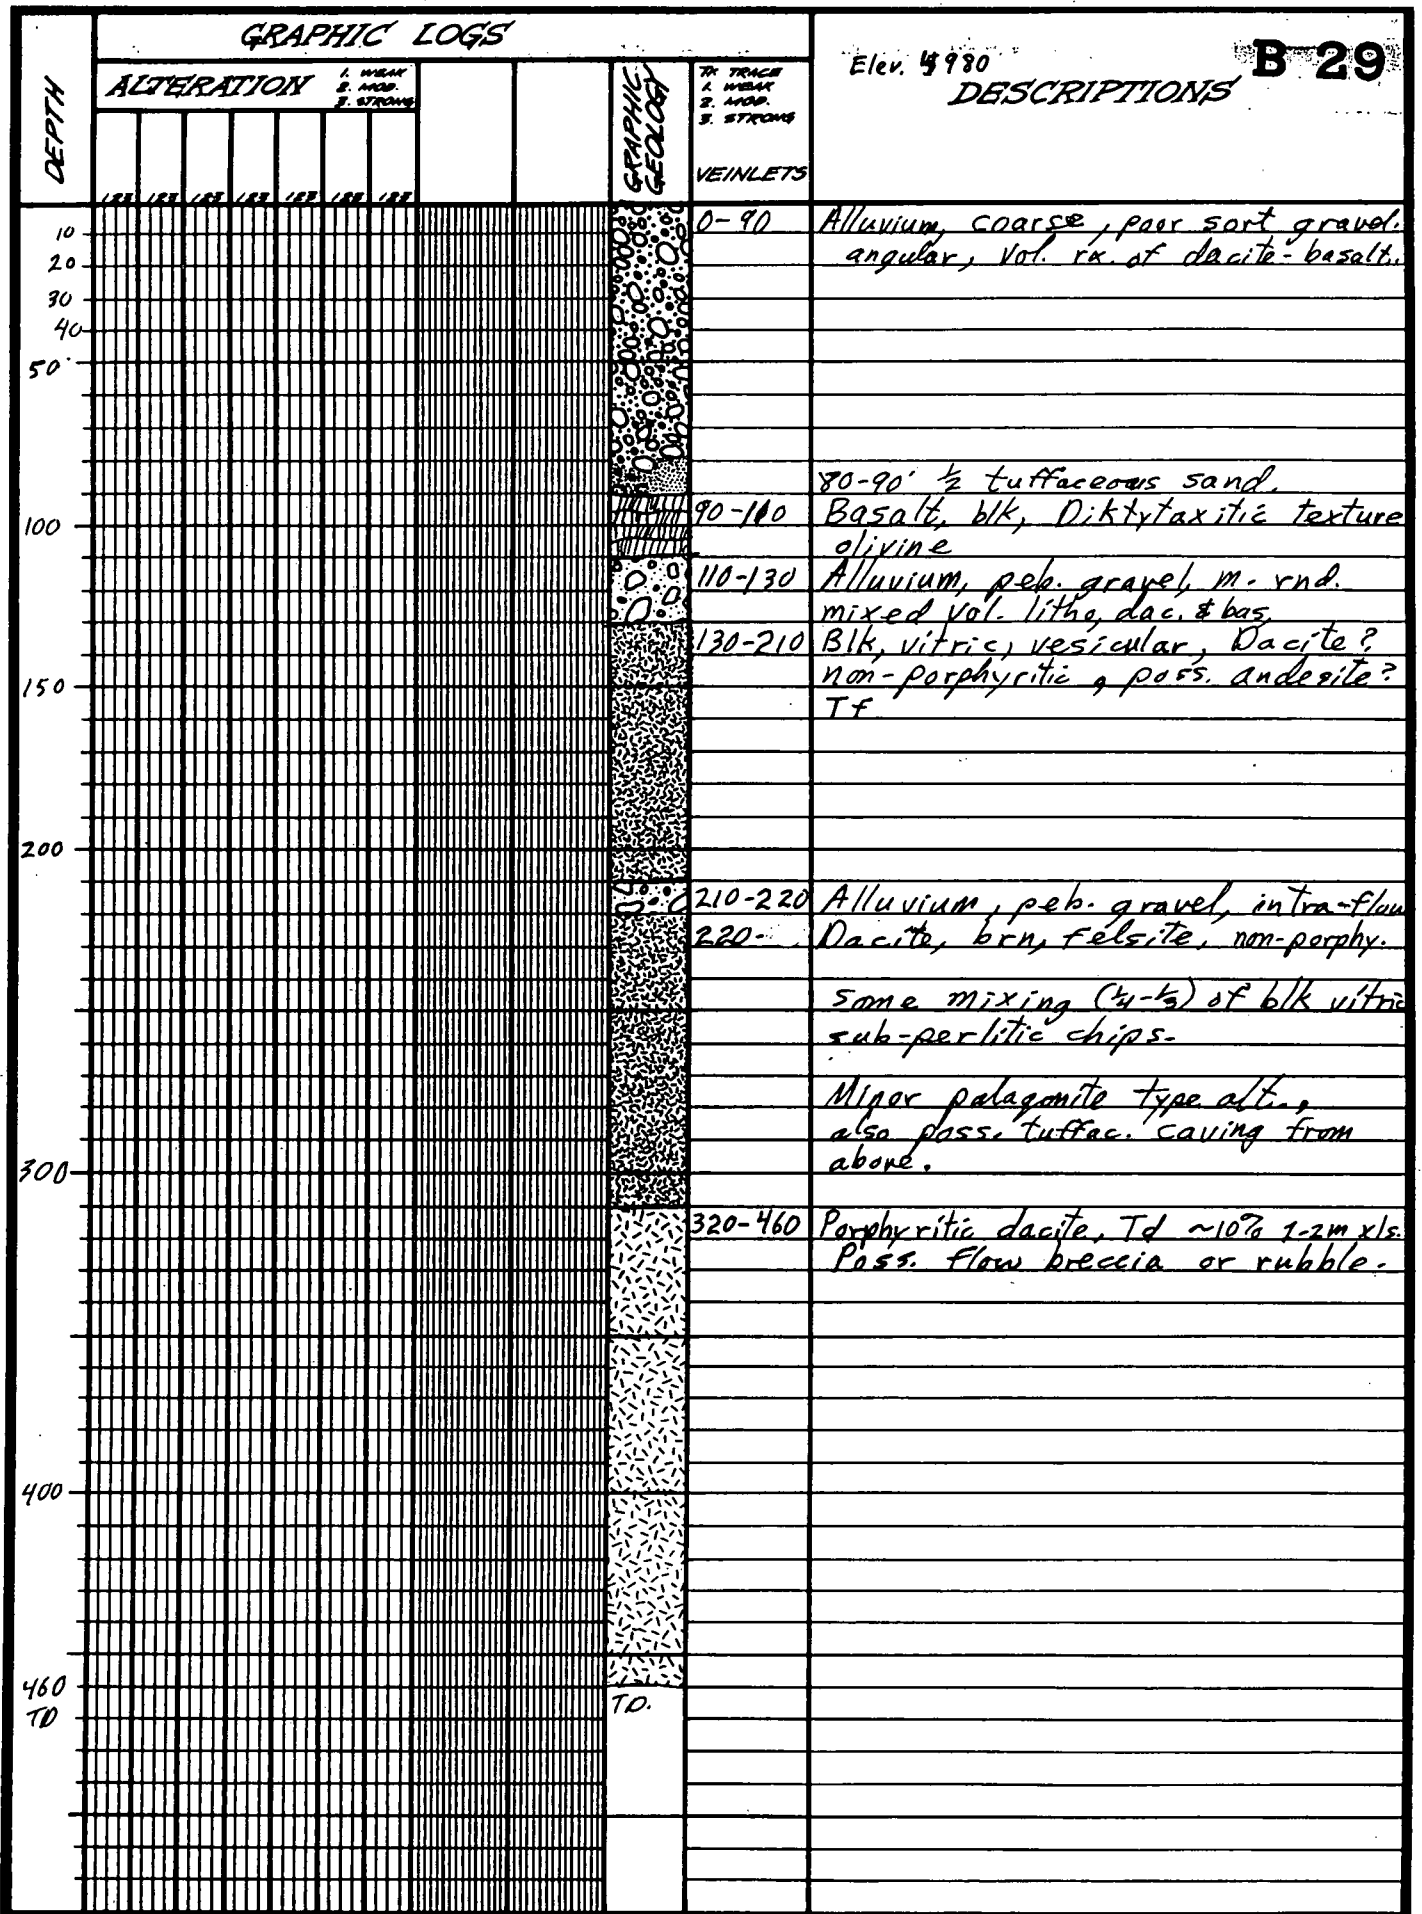 GRAPHIC LOGS
Elev. 4980
B 29
DESCRIPTIONS
DEPTH
ALTERATION
1. WEAK
2. MOD.
3. STRONG
GRAPHIC
GEOLOGY
TR TRACE
1. WEAK
2. MOD.
3. STRONG
VEINLETS
123 123 123 123 123 123 123
10
20
30
40
50'
100
150
200
300
400
460
TD
0-90 Alluvium, coarse, poor sort gravel.
angular, Vol. rx. of dacite-basalt.
80-90' 1/2 tuffaceous sand.
90-110 Basalt, blk, Diktytaxitic texture
olivine
110-130 Alluvium, peb. gravel, m. rnd.
mixed vol. litho, dac. & bas.
130-210 Blk, vitric, vesicular, Dacite?
non-porphyritic, poss. andesite?
Tf
210-220 Alluvium, peb. gravel, intra-flow
220- Dacite, brn, felsite, non-porphy.
some mixing (1/4-1/3) of blk vitric
sub-perlitic chips.
Minor palagonite type alt.,
also poss. tuffac. caving from
above.
320-460 Porphyritic dacite, Td ~10% 1-2m xls.
Poss. flow breccia or rubble.
TD.